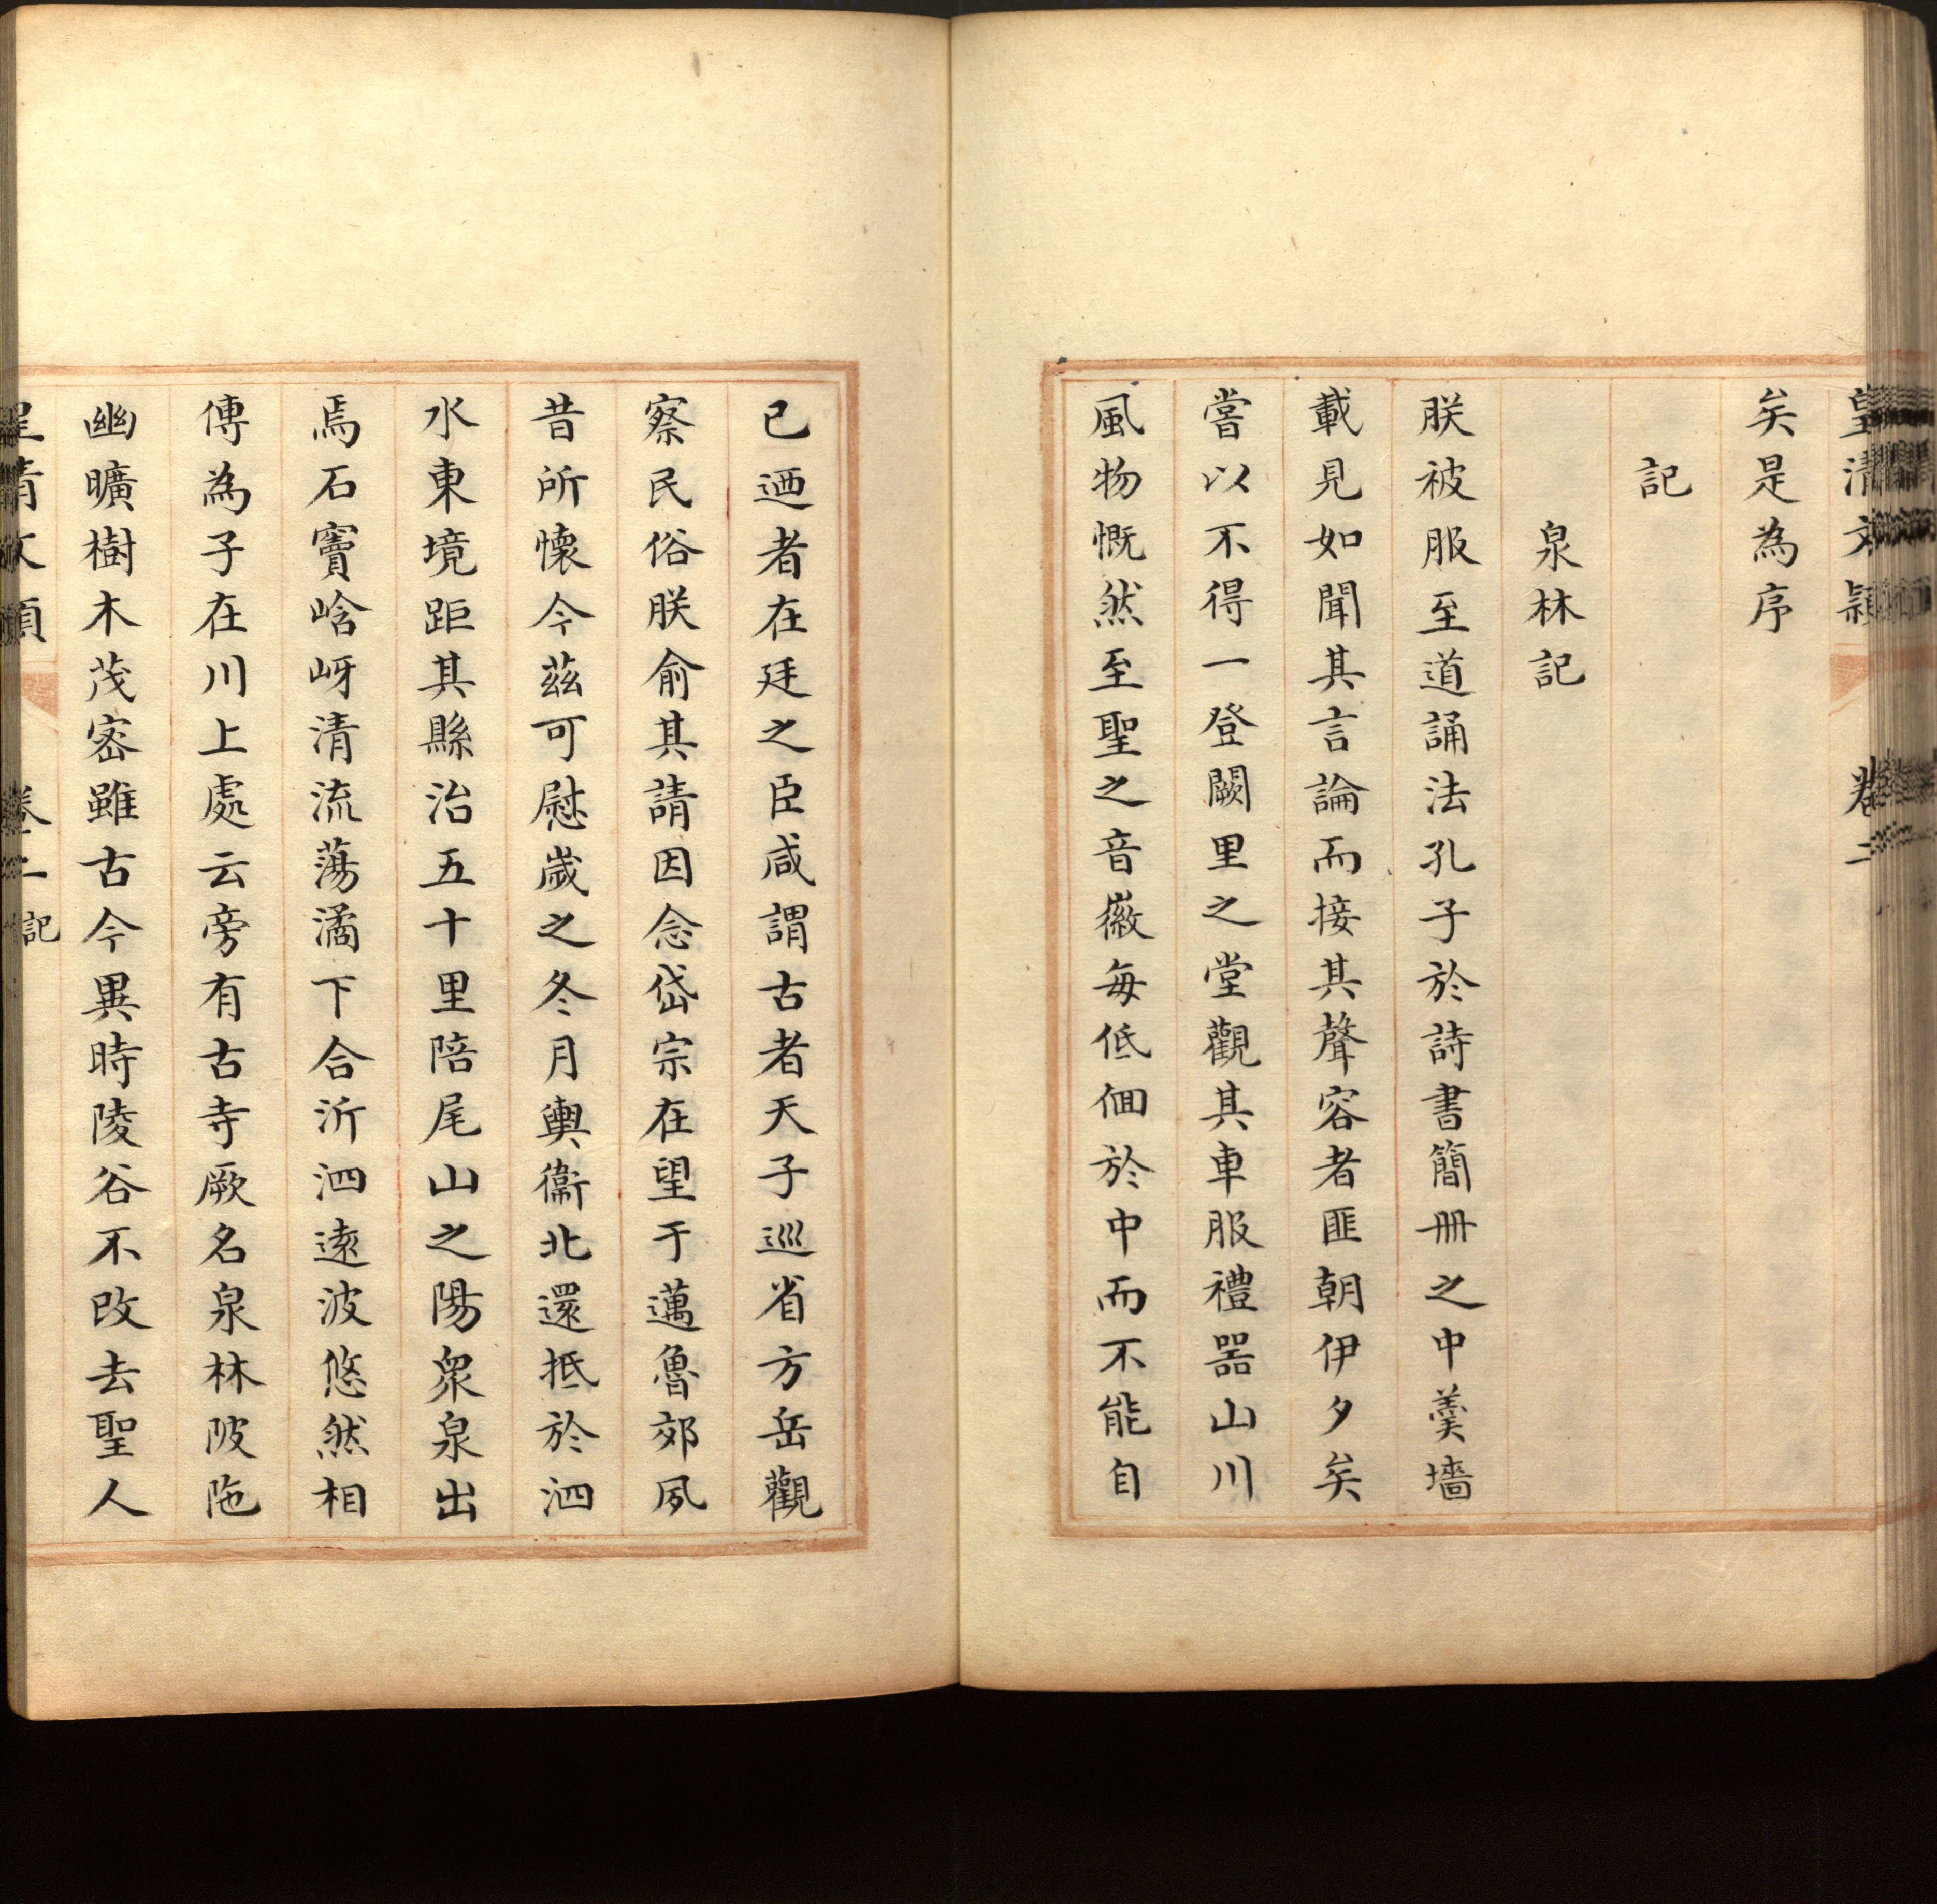 皇清文穎 卷二
矣是為序
記
泉林記
朕被服至道誦法孔子於詩書簡冊之中羹墻
載見如聞其言論而接其聲容者匪朝伊夕矣
嘗以不得一登闕里之堂觀其車服禮器山川
風物慨然至聖之音徽每低佪於中而不能自
已迺者在廷之臣咸謂古者天子巡省方岳觀
察民俗朕俞其請因念岱宗在望于邁魯郊夙
昔所懷今茲可慰歲之冬月輿衞北還抵於泗
水東境距其縣治五十里陪尾山之陽衆泉出
焉石竇崡岈清流蕩潏下合沂泗遠波悠然相
傳為子在川上處云旁有古寺厥名泉林陂陁
幽曠樹木茂密雖古今異時陵谷不改去聖人
皇清文穎 卷二 記